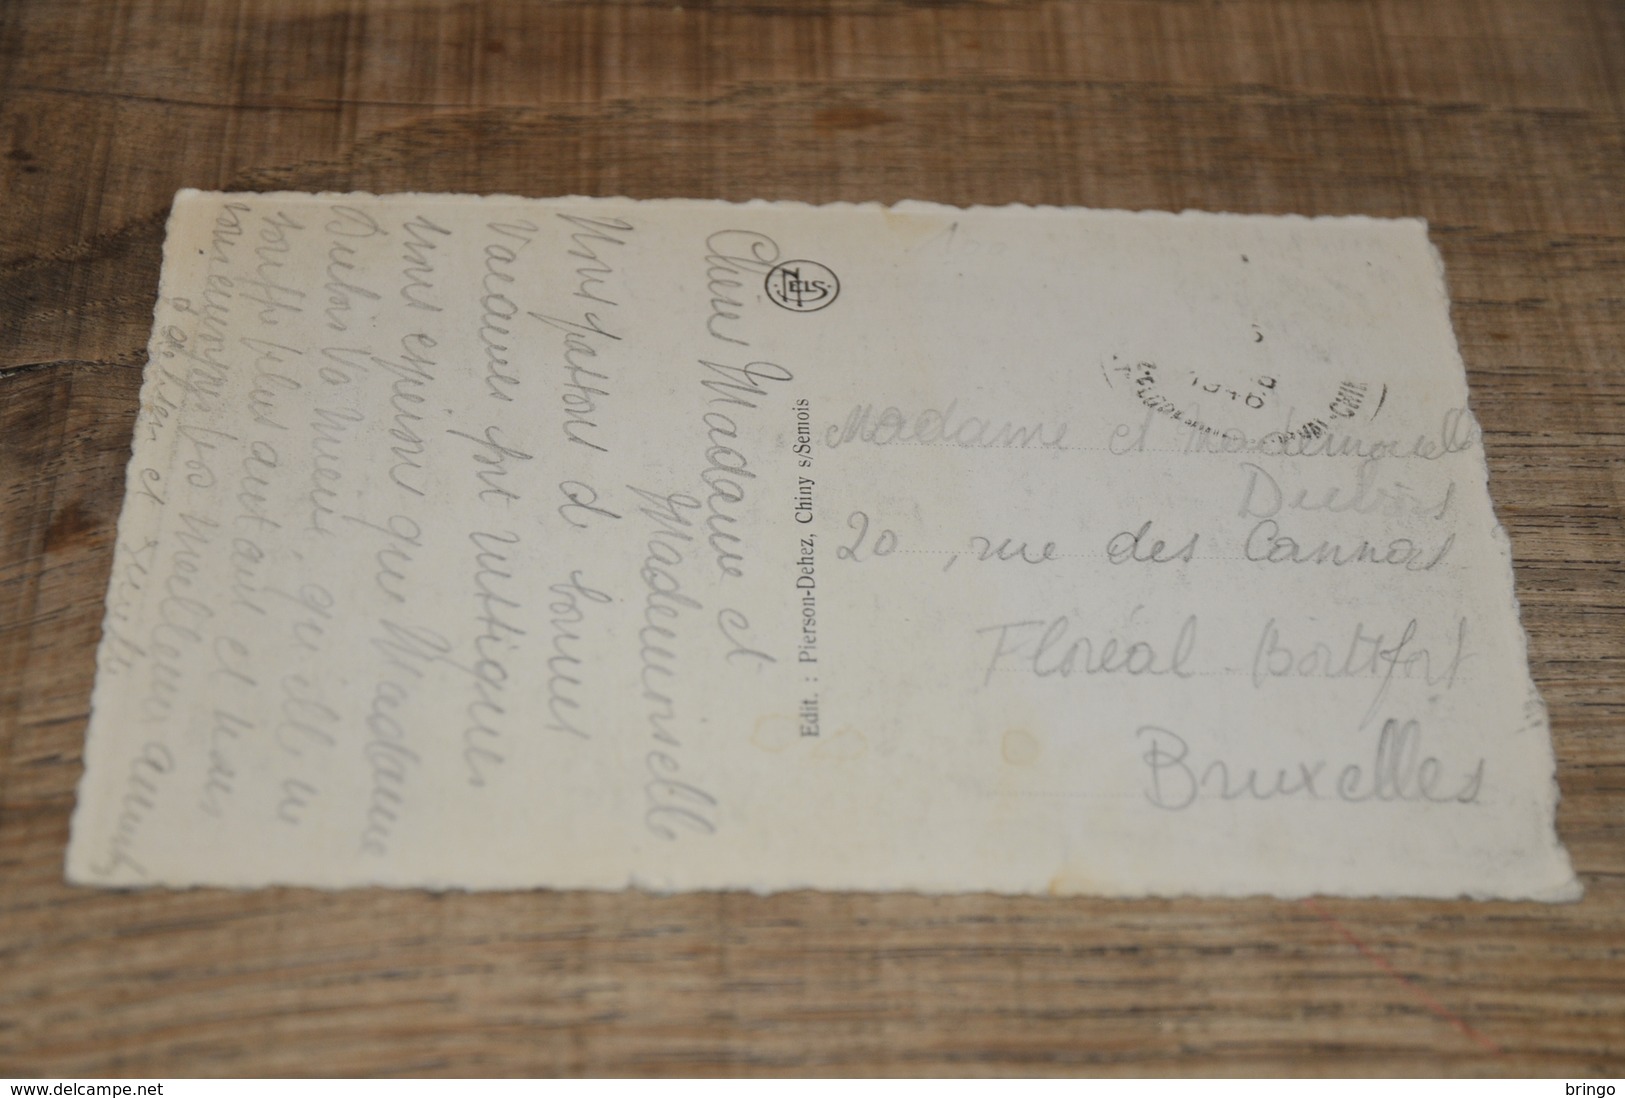 Chères Madame et
Mademoiselle
Nous passons de bonnes
Vacances fort rustiques
nous espérons que Madame
Dubois va mieux, qu'elle ne
souffre plus autant et nous
vous envoyons nos meilleures amitiés
NELS
Edit. : Pierson-Dehez, Chiny s/Semois
100
Madame et Mademoiselle
Dubois
20, rue des Cannas
Floréal - Boitsfort
Bruxelles
www.delcampe.net
bringo